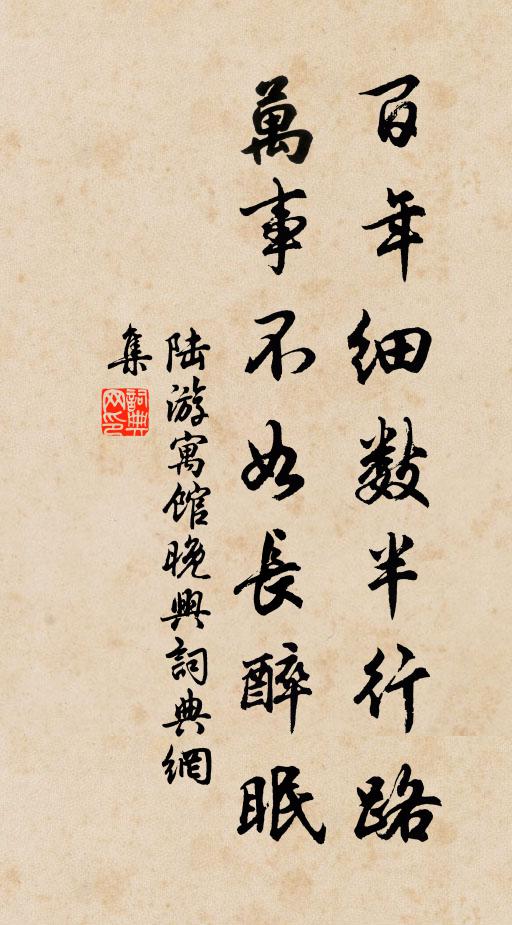 百年细数半行路
萬事不如長醉眠
陆游寓馆晚興詞典網
集
詞典网印